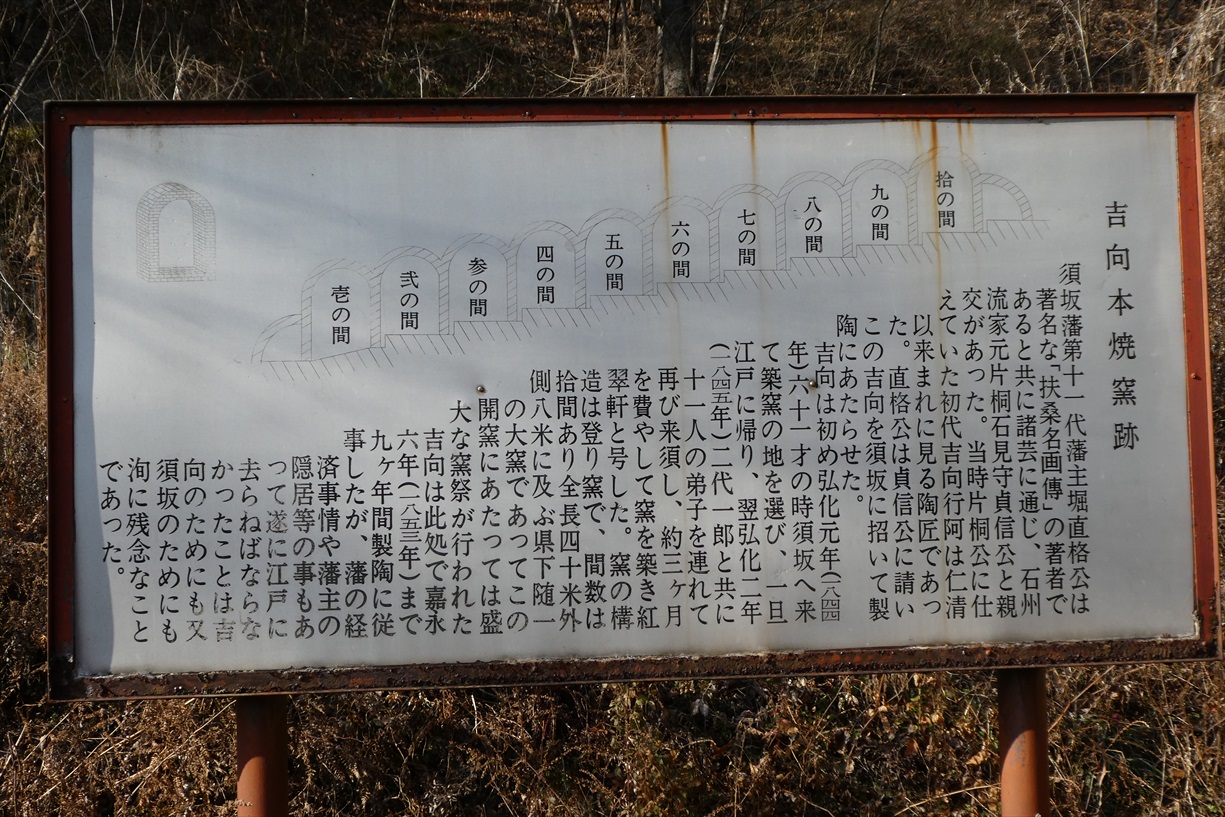 吉向本焼窯跡
須坂藩第十一代藩主堀直格公は
著名な「扶桑名画傳」の著者で
あると共に諸芸に通じ、石州
流家元片桐石見守貞信公と親
交があった。当時片桐公に仕
えていた初代吉向行阿は仁清
以来まれに見る陶匠であっ
た。直格公は貞信公に請い
この吉向を須坂に招いて製
陶にあたらせた。
吉向は初め弘化元年(一八四四
年)六十一才の時須坂へ来
て築窯の地を選び、一旦
江戸に帰り、翌弘化二年
(一八四五年)二代一郎と共に
十一人の弟子を連れて
再び来須し、約三ヶ月
を費やして窯を築き紅
翠軒と号した。窯の構
造は登り窯で、間数は
拾間あり全長四十米外
側八米に及ぶ県下随一
の大窯であってこの
開窯にあたっては盛
大な窯祭が行われた
吉向は此処で嘉永
六年(一八五三年)まで
九ヶ年間製陶に従
事したが、藩の経
済事情や藩主の
隠居等の事もあ
って遂に江戸に
去らねばならな
かったことは吉
向のためにも又
須坂のためにも
洵に残念なこと
であった。
拾の間
九の間
八の間
七の間
六の間
五の間
四の間
参の間
弐の間
壱の間